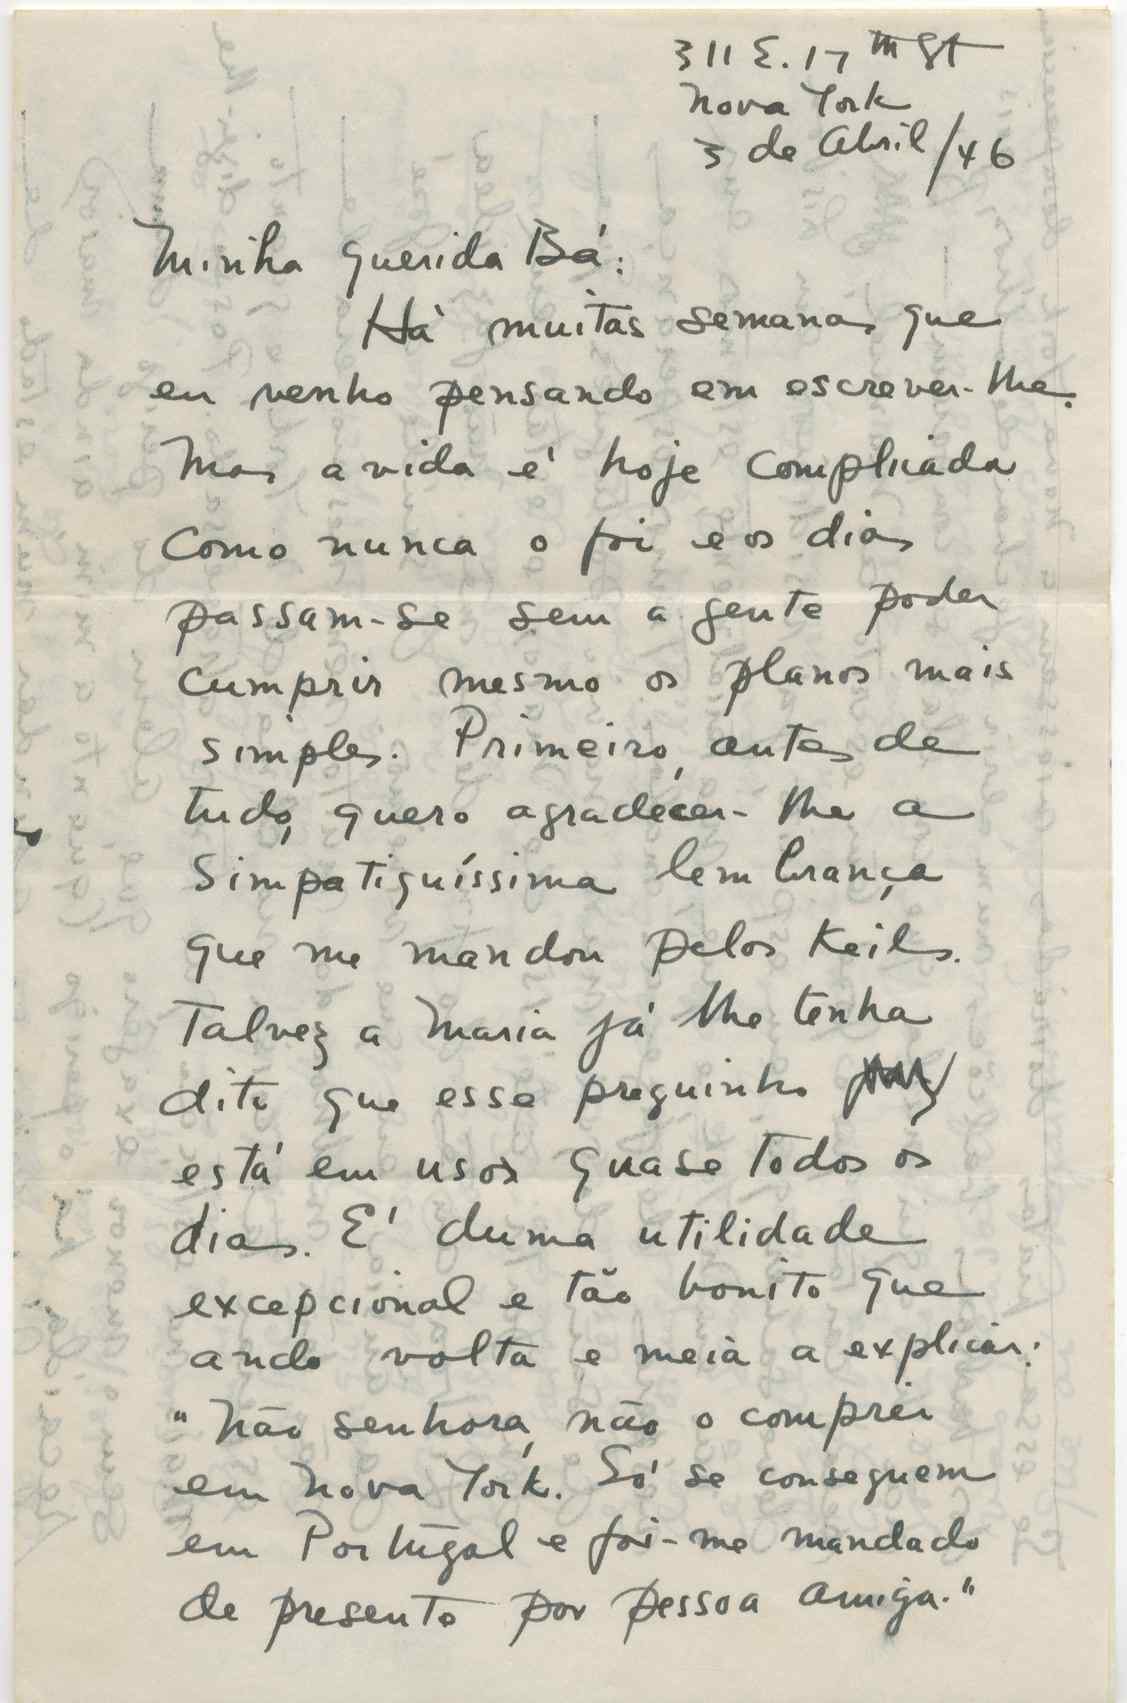 311 E. 17th St
Nova York
3 de Abril/46
Minha querida Bá:
Há muitas semanas que
eu venho pensando em escrever-lhe.
Mas a vida é hoje complicada
como nunca o foi e os dias
passam-se sem a gente poder
cumprir mesmo os planos mais
simples. Primeiro, antes de
tudo, quero agradecer-lhe a
simpatiquíssima lembrança
que me mandou pelos Keils.
Talvez a Maria já lhe tenha
dito que esse preguinho
está em usos quase todos os
dias. E' duma utilidade
excepcional e tão bonito que
ando volta e meia a explicar:
"Não senhora, não o comprei
em Nova York. Só se conseguem
em Portugal e foi-me mandado
de presente por pessoa amiga."